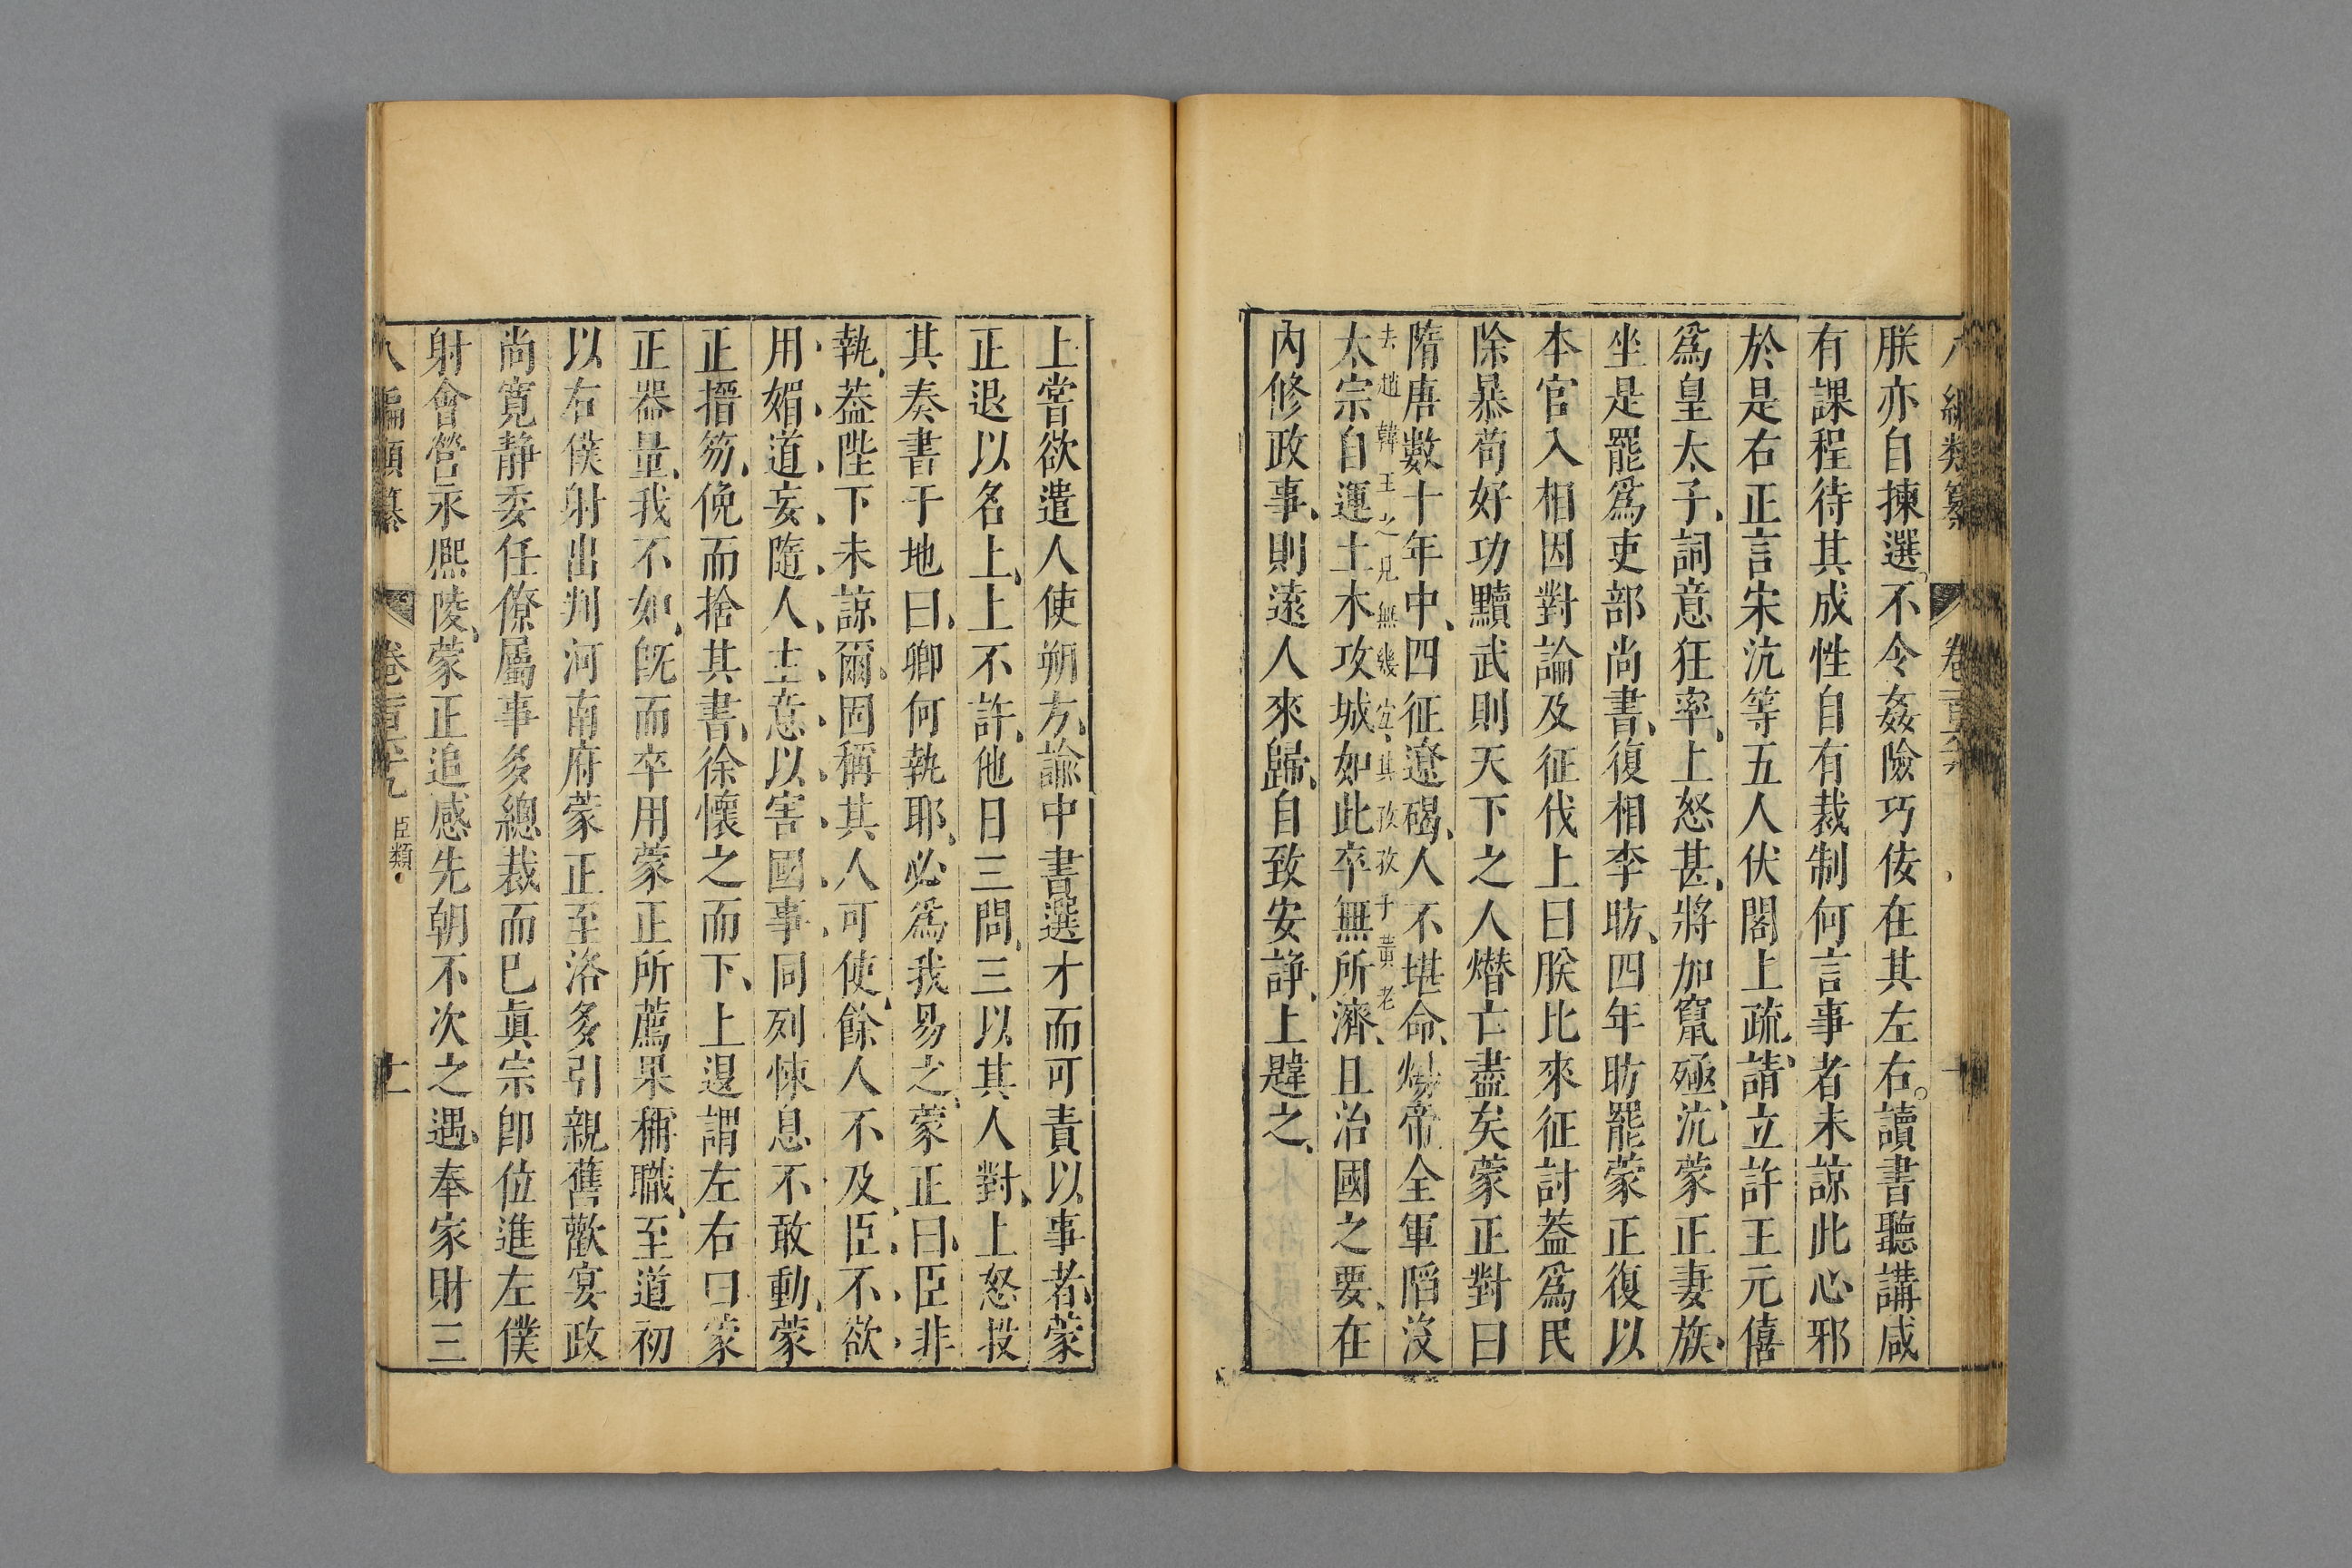 朕亦自揀選。不令姦險巧佞在其左右。讀書聽講咸
有課程待其成性自有裁制何言事者未諒此心邪
於是右正言宋沆等五人伏閤上疏、請立許王元僖
爲皇太子、詞意狂率、上怒甚、將加竄殛、沆蒙正妻族、
坐是罷爲吏部尚書、復相李昉、四年昉罷蒙正復以
本官入相因對論及征伐上曰朕比來征討葢爲民
除暴苟好功黷武則天下之人熸亡盡矣蒙正對曰
隋唐數十年中、四征遼碣、人不堪命、煬帝全軍陷沒
去趙韓王之見無幾宜其孜孜于黃老
太宗自運土木攻城如此卒無所濟、且治國之要、在
內修政事、則遠人來歸、自致安諍、上韙之、
上嘗欲遣人使朔方、諭中書選才而可責以事者、蒙
正退以名上、上不許、他日三問、三以其人對、上怒投
其奏書于地曰、卿何執耶、必爲我易之、蒙正曰、臣非
執、葢陛下未諒爾、固稱其人可使、餘人不及、臣不欲
用媚道妄隨人主意、以害國事、同列悚息不敢動、蒙
正搢笏、俛而拾其書、徐懷之而下、上退謂左右曰蒙
正器量、我不如、旣而卒用蒙正所薦果稱職、至道初
以右僕射出判河南府蒙正至洛多引親舊歡宴政
尚寬靜委任僚屬事多總裁而已眞宗卽位進左僕
射會營永熈陵、蒙正追感先朝不次之遇、奉家財三
八編類纂 卷 臣類